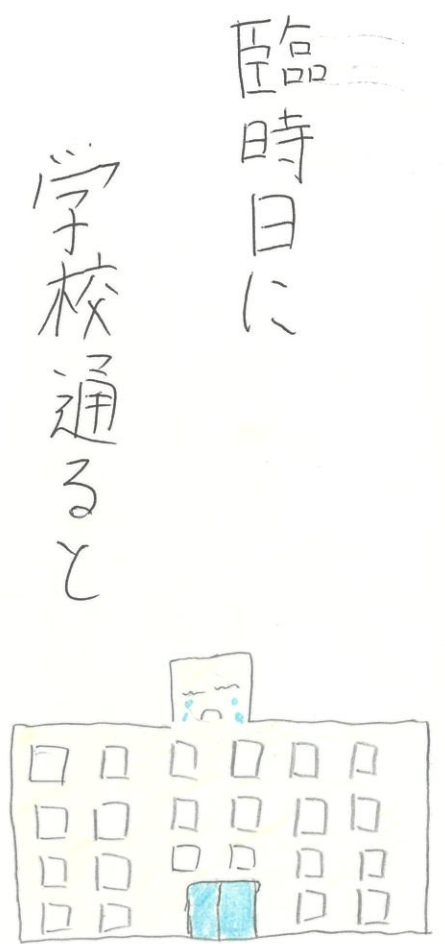 臨時日に
学校通ると